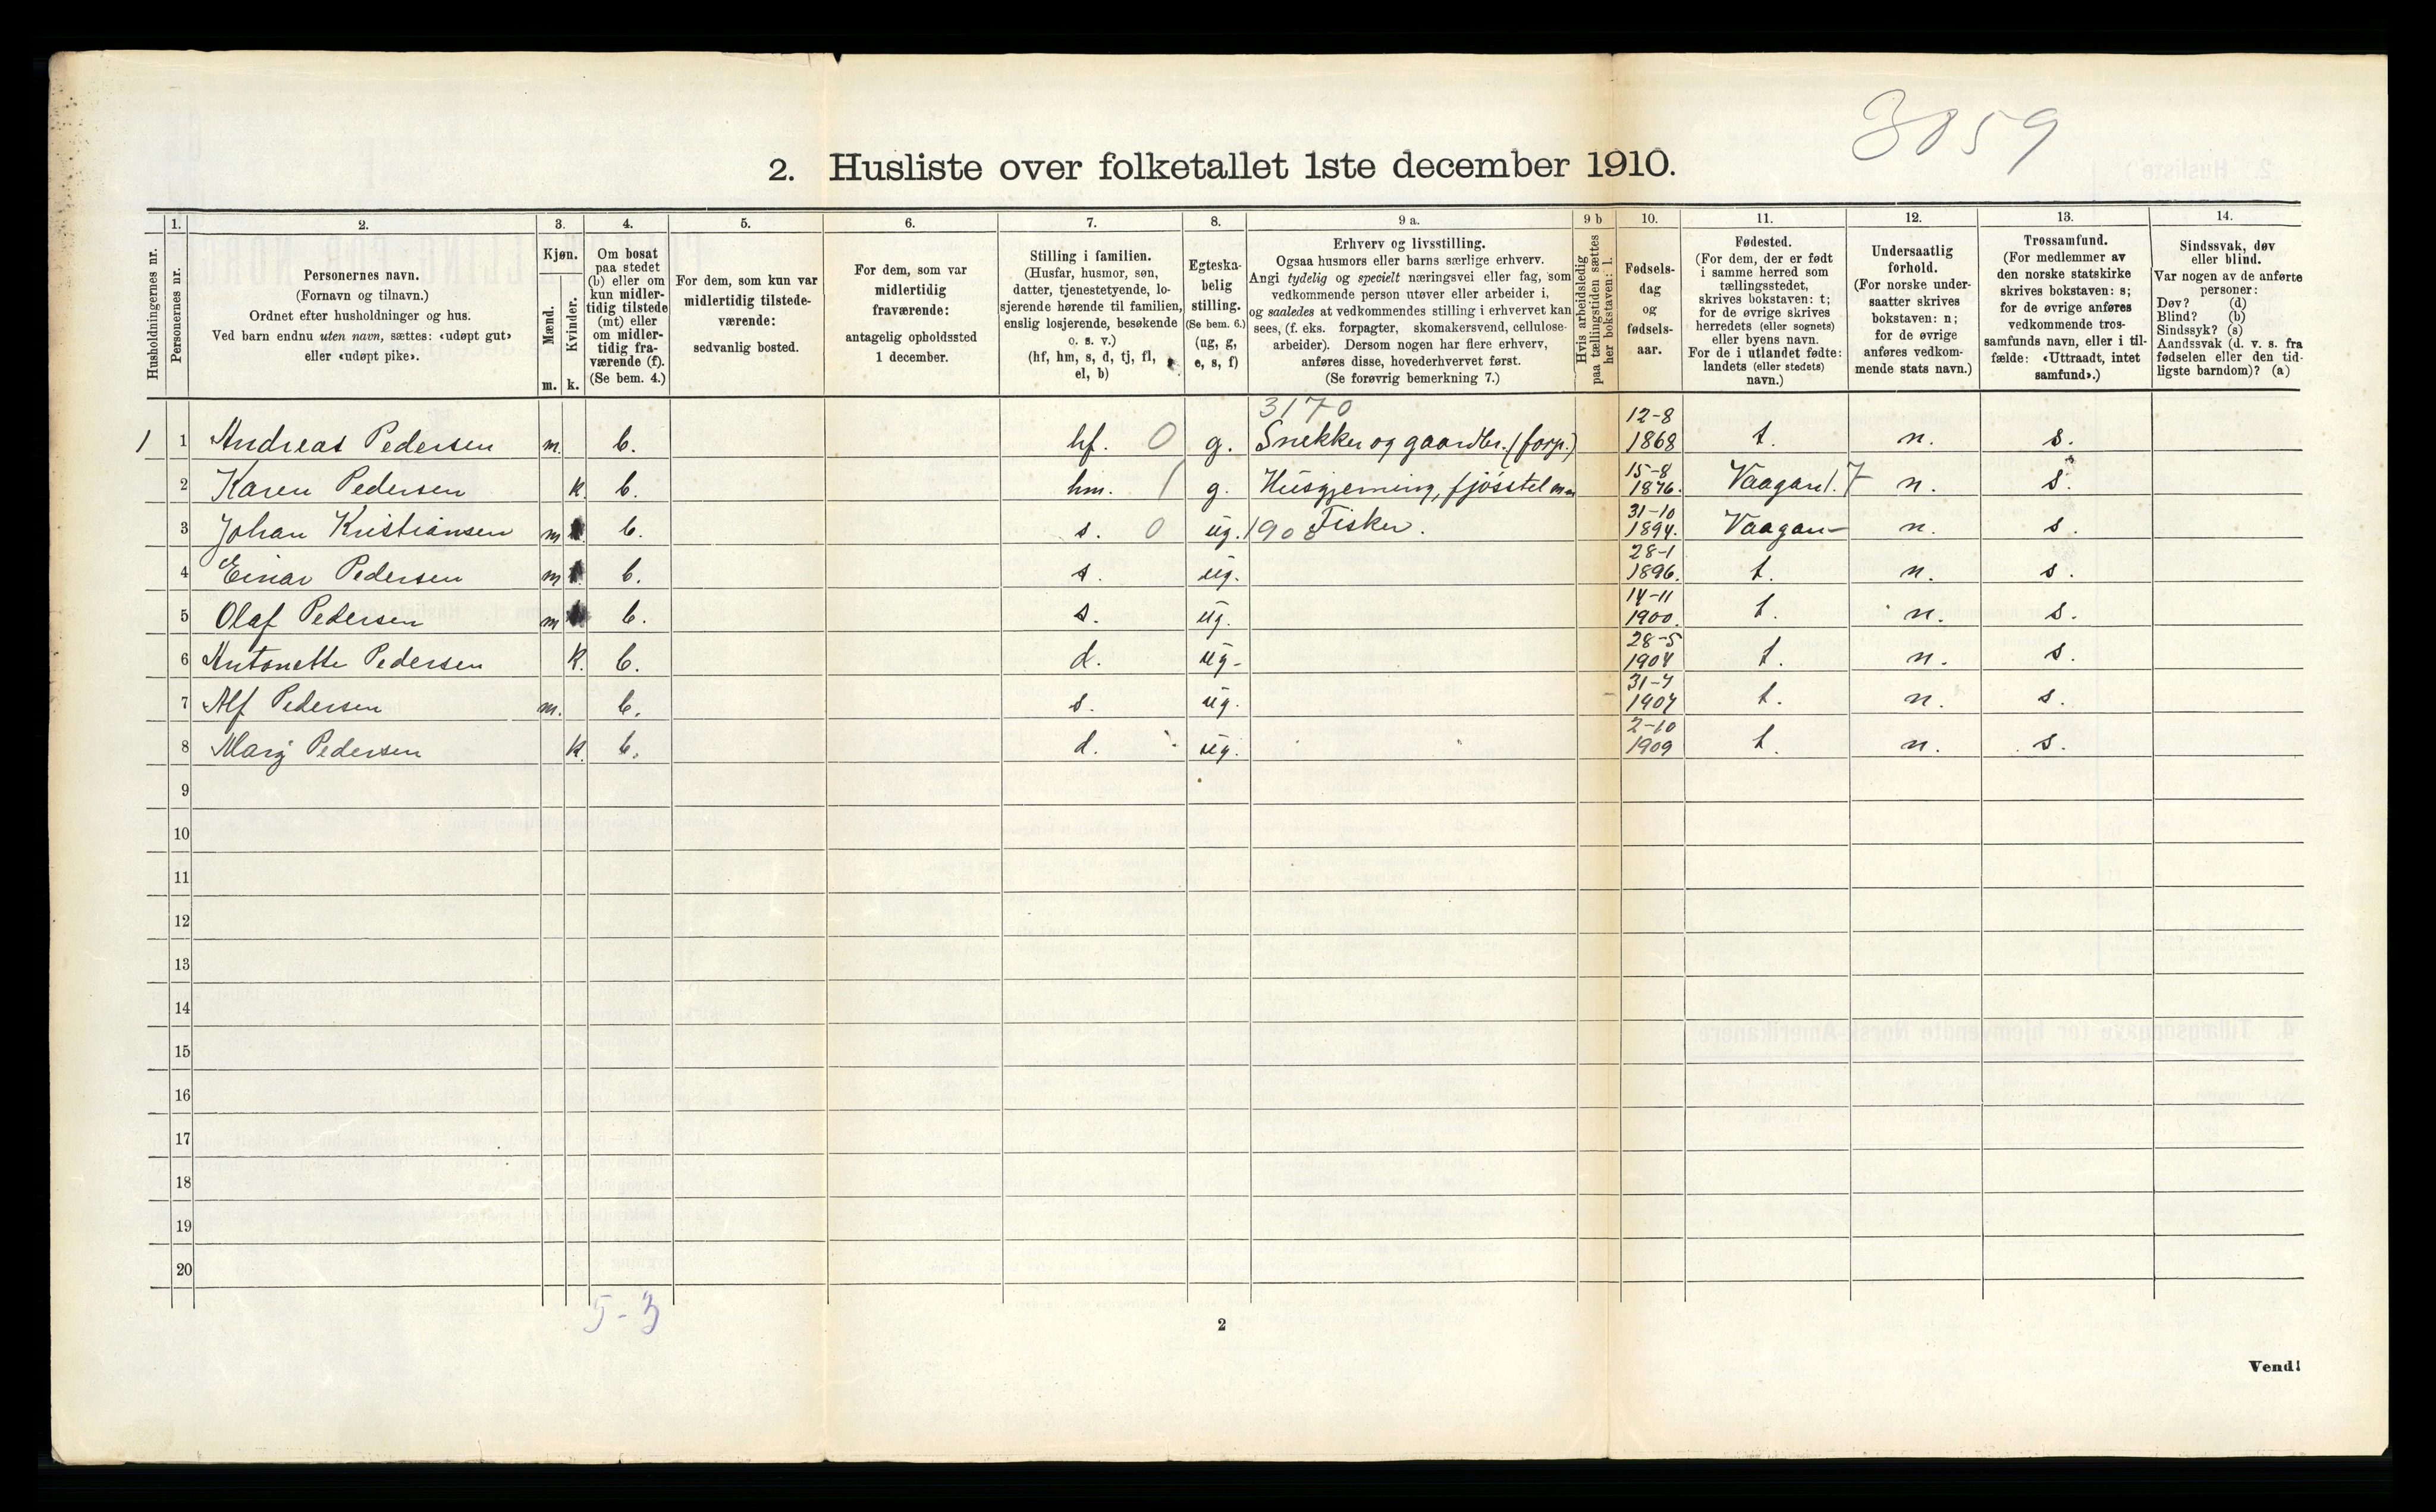 3059
2. Husliste over folketallet 1ste december 1910.
Husholdningernes nr.
1.
Personernes nr.
2.
Personernes navn.
(Fornavn og tilnavn.)
Ordnet efter husholdninger og hus.
Ved barn endnu uten navn, sættes: «udøpt gut»
eller «udøpt pike».
3.
Kjøn.
Mænd.
m.
Kvinder.
k.
4.
Om bosat
paa stedet
(b) eller om
kun midler-
tidig tilstede
(mt) eller
om midler-
tidig fra-
værende (f).
(Se bem. 4.)
5.
For dem, som kun var
midlertidig tilstede-
værende:
sedvanlig bosted.
6.
For dem, som var
midlertidig
fraværende:
antagelig opholdssted
1 december.
7.
Stilling i familien.
(Husfar, husmor, søn,
datter, tjenestetyende, lo-
sjerende hørende til familien,
enslig losjerende, besøkende
o. s. v.)
(hf, hm, s, d, tj, fl,
el, b)
8.
Egteska-
belig
stilling.
(Se bem. 6.)
(ug, g,
e, s, f)
9 a.
Erhverv og livsstilling.
Ogsaa husmors eller barns særlige erhverv.
Angi tydelig og specielt næringsvei eller fag, som
vedkommende person utøver eller arbeider i,
og saaledes at vedkommendes stilling i erhvervet kan
sees, (f. eks. forpagter, skomakersvend, cellulose-
arbeider). Dersom nogen har flere erhverv,
anføres disse, hovederhvervet først.
(Se forøvrig bemerkning 7.)
9 b
Hvis arbeidsledig
paa tællingstiden sættes
her bokstaven: l.
10.
Fødsels-
dag
og
fødsels-
aar.
11.
Fødested.
(For dem, der er født
i samme herred som
tællingsstedet,
skrives bokstaven: t;
for de øvrige skrives
herredets (eller sognets)
eller byens navn.
For de i utlandet fødte:
landets (eller stedets)
navn.)
12.
Undersaatlig
forhold.
(For norske under-
saatter skrives
bokstaven: n;
for de øvrige
anføres vedkom-
mende stats navn.)
13.
Trossamfund.
(For medlemmer av
den norske statskirke
skrives bokstaven: s;
for de øvrige anføres
vedkommende tros-
samfunds navn, eller i til-
fælde: «Uttraadt, intet
samfund».)
14.
Sindssvak, døv
eller blind.
Var nogen av de anførte
personer:
Døv? (d)
Blind? (b)
Sindssyk? (s)
Aandssvak (d. v. s. fra
fødselen eller den tid-
ligste barndom)? (a)
3170
1 1 Andreas Pedersen m. b. hf. 0 g. Snekker og gaardbr. (forp.) 12-8 1868 t. n. s.
2 Karen Pedersen k. b. hm. 1 g. Husgjerning, fjösstel 15-8 1876. Vaagan n. s.
3 Johan Kristiansen m b. s. 0 ug. 1908 Fisker. 31-10 1894. Vaagan n. s.
4 Einar Pedersen m b. s. ug. 28-1 1896. t. n. s.
5 Olaf Pedersen m b. s. ug. 14-11 1900. t. n. s.
6 Antonette Pedersen k. b. d. ug. 28-5 1904 t. n. s.
7 Alf Pedersen m. b. s. ug. 31-7 1907 t. n. s.
8 Marij Pedersen k. b. d. ug. 2-10 1909 t. n. s.
9
10
11
12
13
14
15
16
17
18
19
20
5-3
2
Vend!